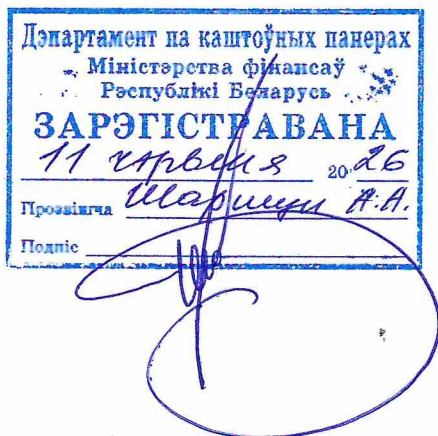 Дэпартамент па каштоўных паперах
Міністэрства фінансаў
Рэспублікі Беларусь
ЗАРЭГІСТРАВАНА
11 чэрвеня 2026
Прозвішча А.А.
Подпіс